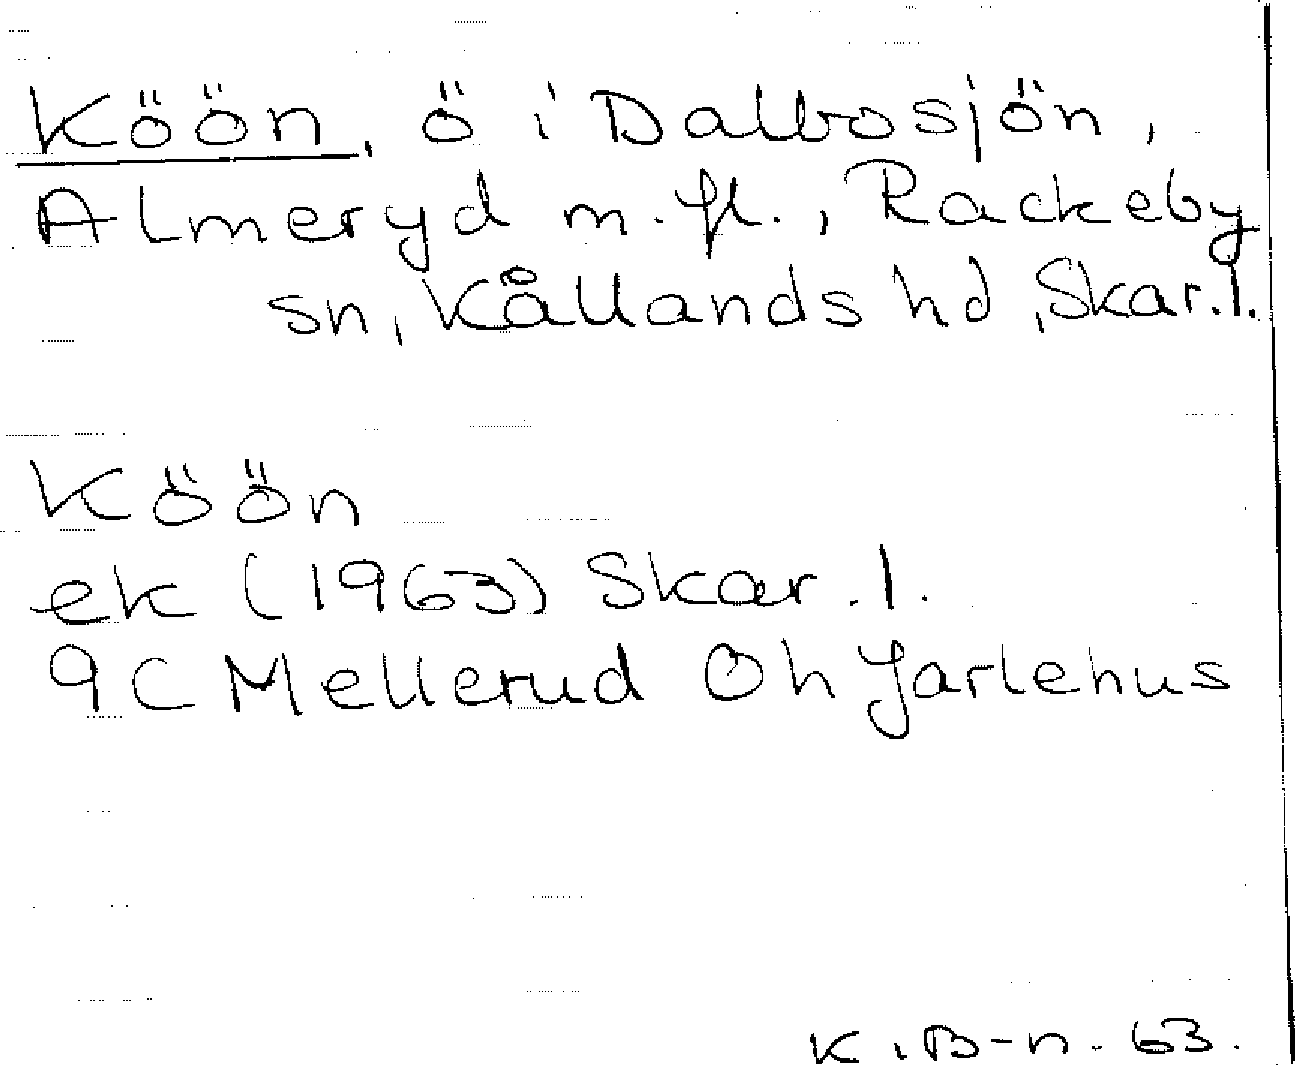 Köön, ö i Dalbosjön,
Almeryd m.fl., Rackeby
sn, Kållands hd, Skar.l.
Köön
ek (1963) Skar.l.
9C Mellerud Öh Jarlehus
K.B-n. 63.